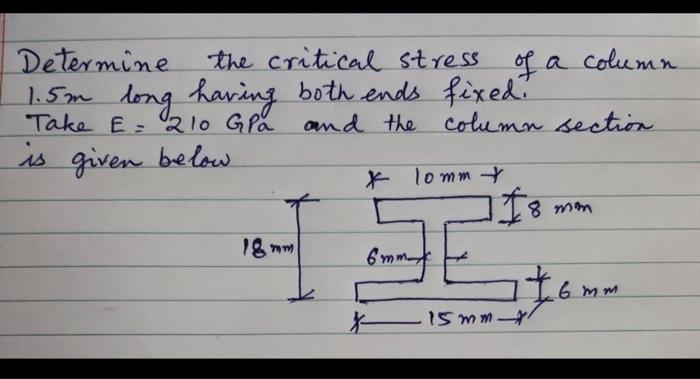 Determine the critical stress of a column
1.5m long having both ends fixed.
Take E = 210 GPa and the column section
is given below
10 mm
8 mm
18 mm
6 mm
6 mm
15 mm